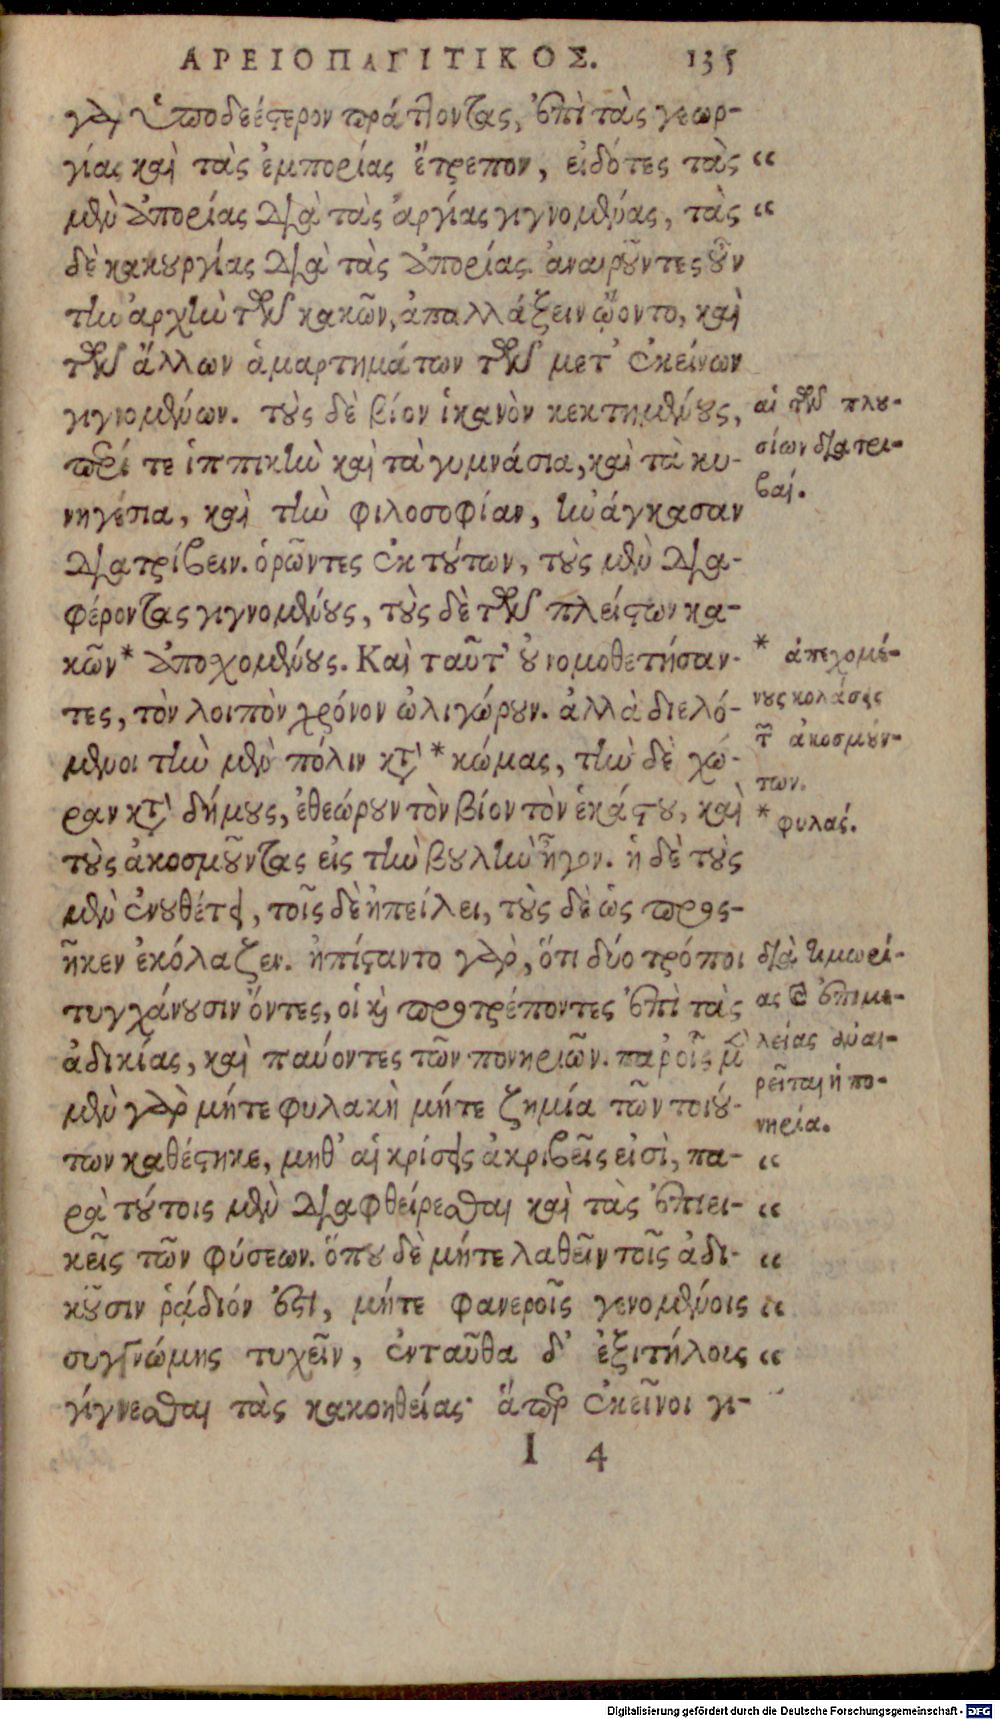 ΑΡΕΙΟΠΑΓΙΤΙΚΟΣ. 135
γὰρ ὑποδεέστερον πράττοντας, ἐπὶ τὰς γεωρ-
γίας καὶ τὰς ἐμπορίας ἔτρεπον, εἰδότες τὰς “
μὲν ἀπορίας διὰ τὰς ἀργίας γιγνομένας, τὰς “
δὲ κακουργίας διὰ τὰς ἀπορίας. ἀναιροῦντες οὖν
τὴν ἀρχὴν τῶν κακῶν, ἀπαλλάξειν ᾤοντο, καὶ
τῶν ἄλλων ἁμαρτημάτων τῶν μετ’ ἐκείνων
γιγνομένων. τοὺς δὲ βίον ἱκανὸν κεκτημένους,
περί τε ἱππικὴν καὶ τὰ γυμνάσια, καὶ τὰ κυ-
νηγέσια, καὶ τὴν φιλοσοφίαν, ἠνάγκασαν
διατρίβειν. ὁρῶντες ἐκ τούτων, τοὺς μὲν δια-
φέροντας γιγνομένους, τοὺς δὲ τῶν πλείστων κα-
κῶν * ἀποχομένους. Καὶ ταῦτ’ οὐ νομοθετήσαν-
τες, τὸν λοιπὸν χρόνον ὠλιγώρουν. ἀλλὰ διελό-
μενοι τὴν μὲν πόλιν κατὰ * κώμας, τὴν δὲ χώ-
ραν κατὰ δήμους, ἐθεώρουν τὸν βίον τὸν ἑκάστου, καὶ
τοὺς ἀκοσμοῦντας εἰς τὴν βουλὴν ἦγον. ἡ δὲ τοὺς
μὲν ἐνουθέτει, τοῖς δὲ ἠπείλει, τοὺς δὲ ὡς προς-
ῆκεν ἐκόλαζεν. ἠπίσταντο γὰρ, ὅτι δύο τρόποι
τυγχάνουσιν ὄντες, οἱ καὶ προτρέποντες ἐπὶ τὰς
ἀδικίας, καὶ παύοντες τῶν πονηριῶν. παρ’ οἷς μὲν
μὲν γὰρ μήτε φυλακὴ μήτε ζημία τῶν τοιού-
των καθέστηκε, μηθ’ αἱ κρίσεις ἀκριβεῖς εἰσὶ, πα- “
ρὰ τούτοις μὲν διαφθείρεσθαι καὶ τὰς ἐπιει- “
κεῖς τῶν φύσεων. ὅπου δὲ μήτε λαθεῖν τοῖς ἀδι- “
κοῦσιν ῥᾴδιόν ἐστι, μήτε φανεροῖς γενομένοις “
συγγνώμης τυχεῖν, ἐνταῦθα δ’ ἐξιτήλους “
γίγνεσθαι τὰς κακοηθείας· ἅπερ ἐκεῖνοι γι-
I 4
αἱ τῶν πλου-
σίων διατρι-
βαί.
* ἀπεχομέ-
νους κολάσεις
τῶν ἀκοσμούν-
των.
* φυλάς.
διὰ τιμωρί-
ας καὶ ἐπιμε-
λείας ἀναι-
ρεῖται ἡ πο-
νηρία.
Digitalisierung gefördert durch die Deutsche Forschungsgemeinschaft - DFG